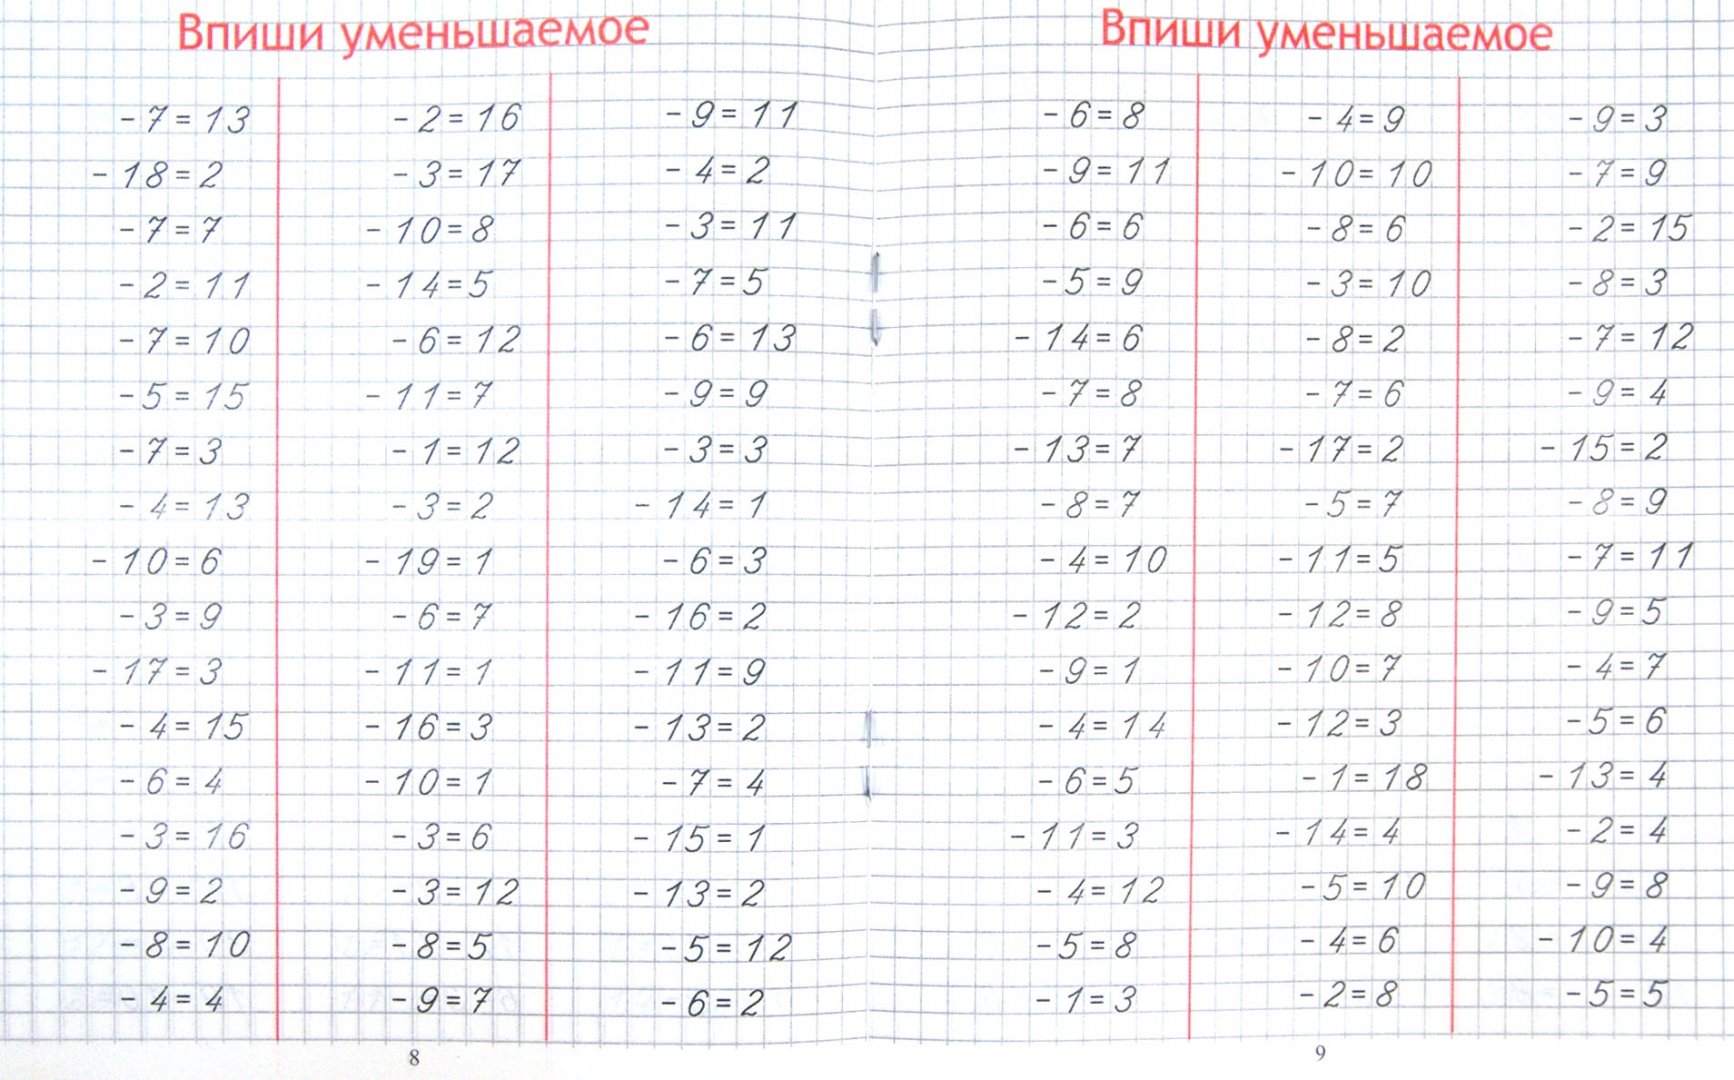 Впиши уменьшаемое
- 7 = 13
- 18 = 2
- 7 = 7
- 2 = 11
- 7 = 10
- 5 = 15
- 7 = 3
- 4 = 13
- 10 = 6
- 3 = 9
- 17 = 3
- 4 = 15
- 6 = 4
- 3 = 16
- 9 = 2
- 8 = 10
- 4 = 4
- 2 = 16
- 3 = 17
- 10 = 8
- 14 = 5
- 6 = 12
- 11 = 7
- 1 = 12
- 3 = 2
- 19 = 1
- 6 = 7
- 11 = 1
- 16 = 3
- 10 = 1
- 3 = 6
- 3 = 12
- 8 = 5
- 9 = 7
- 9 = 11
- 4 = 2
- 3 = 11
- 7 = 5
- 6 = 13
- 9 = 9
- 3 = 3
- 14 = 1
- 6 = 3
- 16 = 2
- 11 = 9
- 13 = 2
- 7 = 4
- 15 = 1
- 13 = 2
- 5 = 12
- 6 = 2
8
Впиши уменьшаемое
- 6 = 8
- 9 = 11
- 6 = 6
- 5 = 9
- 14 = 6
- 7 = 8
- 13 = 7
- 8 = 7
- 4 = 10
- 12 = 2
- 9 = 1
- 4 = 14
- 6 = 5
- 11 = 3
- 4 = 12
- 5 = 8
- 1 = 3
- 4 = 9
- 10 = 10
- 8 = 6
- 3 = 10
- 8 = 2
- 7 = 6
- 17 = 2
- 5 = 7
- 11 = 5
- 12 = 8
- 10 = 7
- 12 = 3
- 1 = 18
- 14 = 4
- 5 = 10
- 4 = 6
- 2 = 8
- 9 = 3
- 7 = 9
- 2 = 15
- 8 = 3
- 7 = 12
- 9 = 4
- 15 = 2
- 8 = 9
- 7 = 11
- 9 = 5
- 4 = 7
- 5 = 6
- 13 = 4
- 2 = 4
- 9 = 8
- 10 = 4
- 5 = 5
9